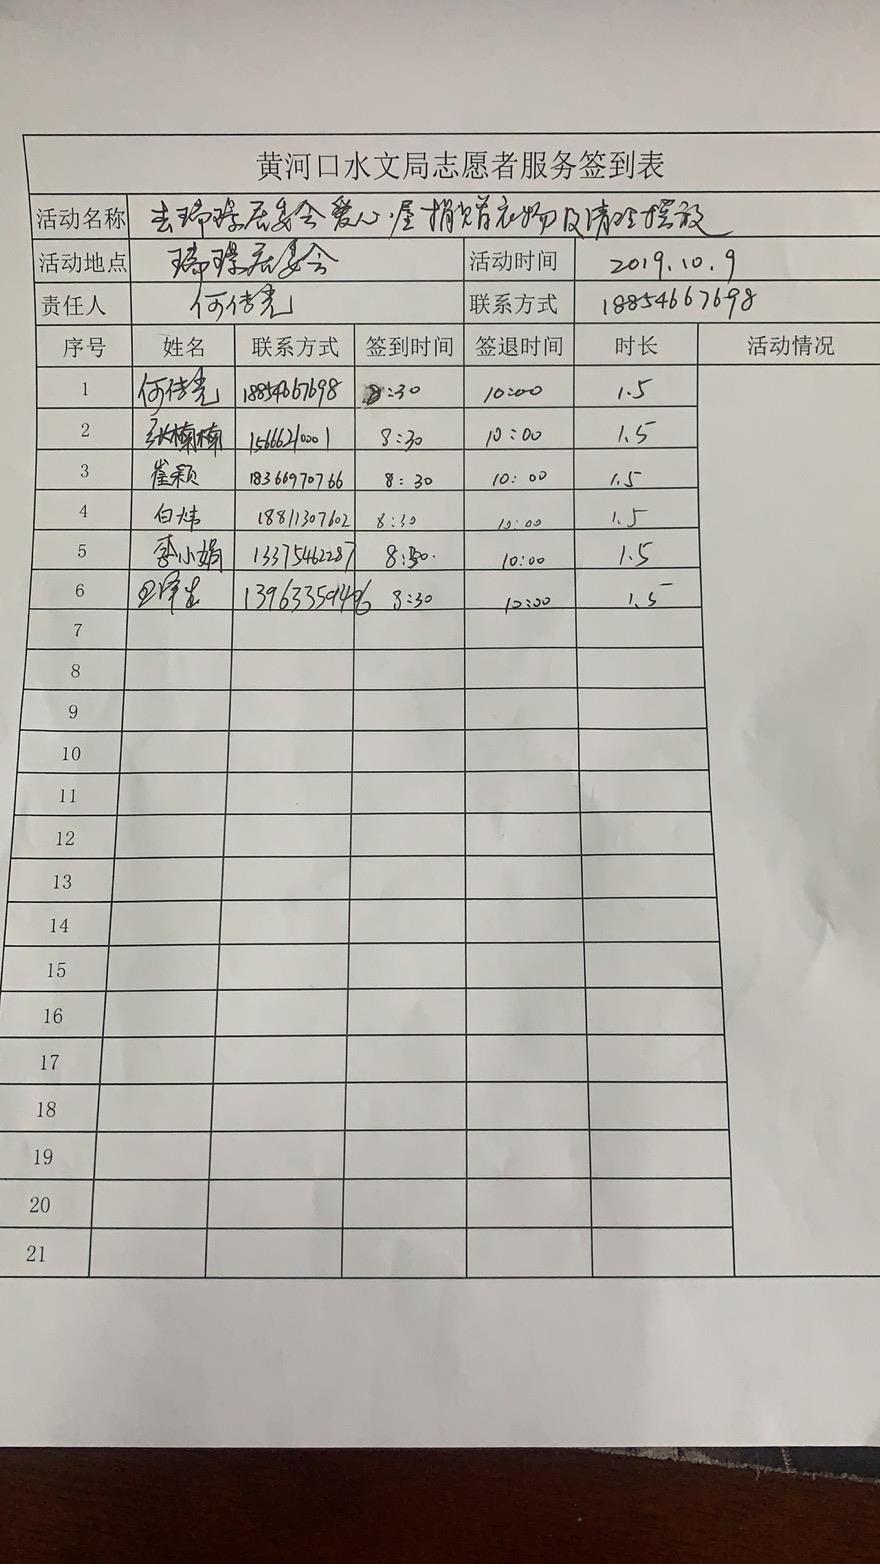 黄河口水文局志愿者服务签到表
活动名称 去瑞璟居委会爱心屋捐赠衣物及清洁摆放
活动地点 瑞璟居委会 活动时间 2019.10.9
责任人 何传亮 联系方式 18854667698
序号 姓名 联系方式 签到时间 签退时间 时长 活动情况
1 何传亮 18854667698 8:30 10:00 1.5
2 张楠楠 15666210001 8:30 10:00 1.5
3 崔颖 18366970766 8:30 10:00 1.5
4 白炜 18811307602 8:30 10:00 1.5
5 李小娟 13375462287 8:30 10:00 1.5
6 8:30 10:00 1.5
7
8
9
10
11
12
13
14
15
16
17
18
19
20
21